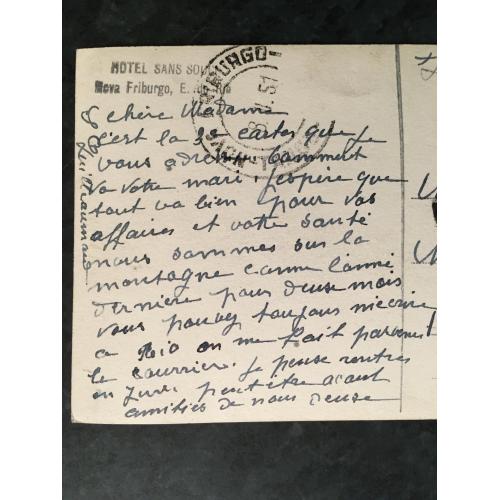 HOTEL SANS SOU
Nova Friburgo, E.
FRIBURGO
51
chère Madame
c'est la 2e cartes que je
vous adresse Comment
va votre mari j'espère que
tout va bien pour vos
affaires et votre santé
nous sommes sur la
montagne comme l'anné
dernière pour deuse mois
vous pouvez toujours m'écrire
a Rio on me fait parvenir
le courrier. je pense rentrer
en Juin peut être avant
amitiés de nous deuse